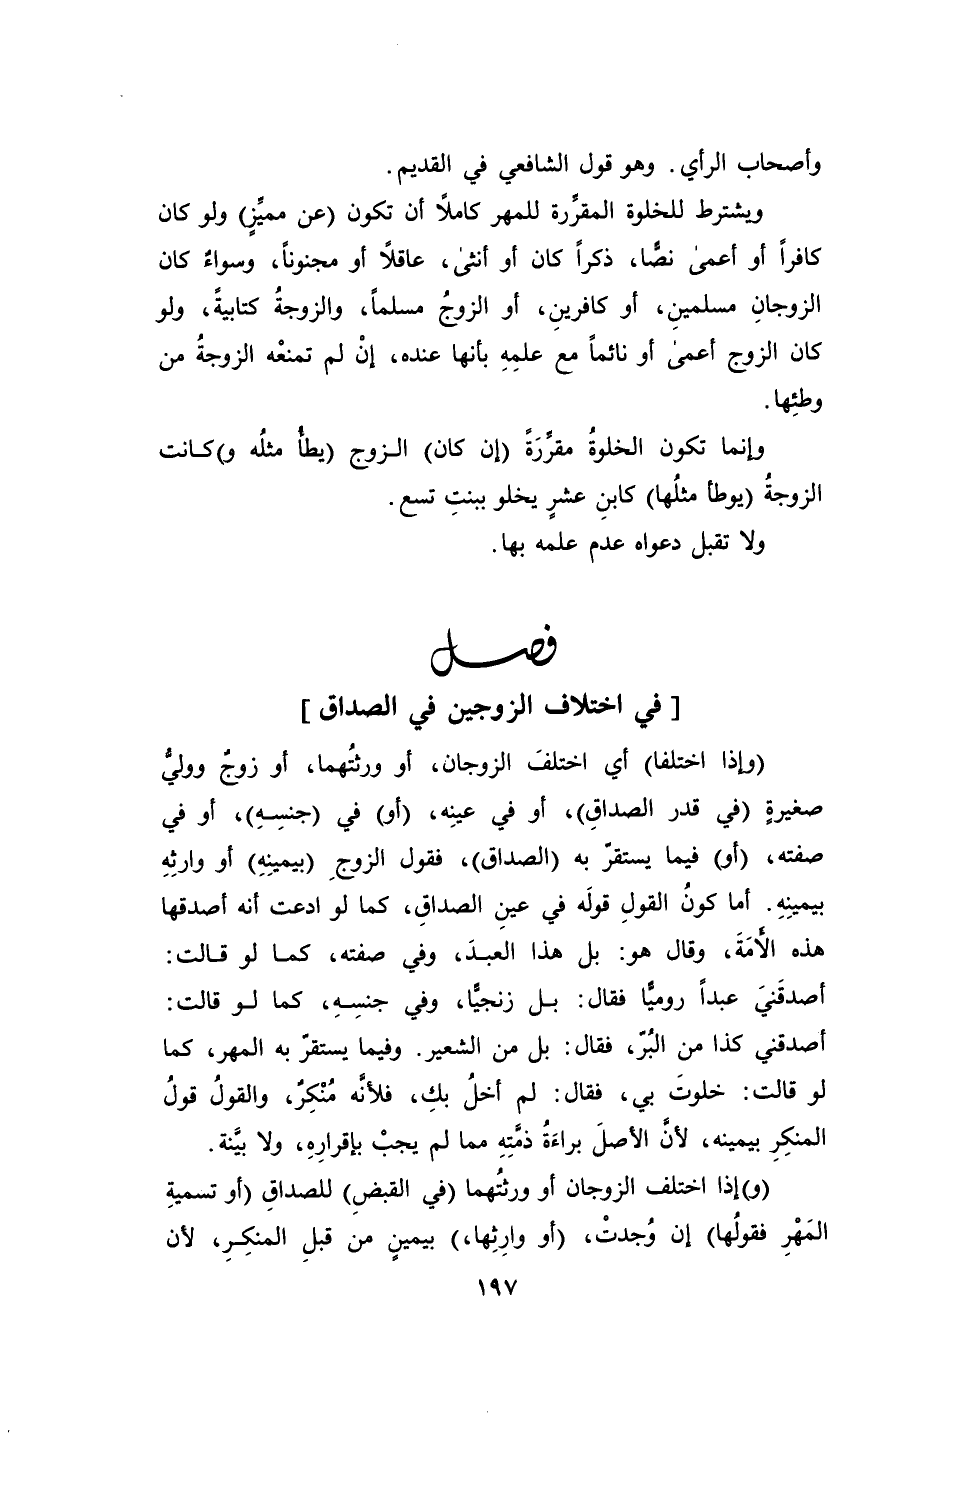 وأصحاب الرأي. وهو قول الشافعي في القديم.
ويشترط للخلوة المقرِّرة للمهر كاملًا أن تكون (عن مميِّزٍ) ولو كان
كافراً أو أعمىٰ نصًّا، ذكراً كان أو أنثىٰ، عاقلًا أو مجنوناً، وسواءٌ كان
الزوجانِ مسلمين، أو كافرينِ، أو الزوجُ مسلماً، والزوجةُ كتابيةً، ولو
كان الزوج أعمىٰ أو نائماً مع علمِهِ بأنها عنده، إنْ لم تمنعْه الزوجةُ من
وطئِها.
وإنما تكون الخلوةُ مقرِّرَةً (إن كان) الـزوج (يطأُ مثلُه و)كـانت
الزوجةُ (يوطأ مثلُها) كابنِ عشرٍ يخلو ببنتِ تسع.
ولا تقبل دعواه عدم علمه بها.
فصـل
[ في اختلاف الزوجين في الصداق ]
(وإذا اختلفا) أي اختلفَ الزوجان، أو ورثتُهما، أو زوجٌ ووليُّ
صغيرةٍ (في قدر الصداقِ)، أو في عينِه، (أو) في (جنسِـهِ)، أو في
صفته، (أو) فيما يستقرّ به (الصداق)، فقول الزوجِ (بيمينِهِ) أو وارثِهِ
بيمينِهِ. أما كونُ القولِ قولَه في عينِ الصداقِ، كما لو ادعت أنه أصدقها
هذه الأَمَةَ، وقال هو: بل هذا العبـدَ، وفي صفته، كمـا لو قـالت:
أصدقَنيَ عبداً روميًّا فقال: بـل زنجيًّا، وفي جنسِـهِ، كما لـو قالت:
أصدقني كذا من البُرّ، فقال: بل من الشعير. وفيما يستقرّ به المهر، كما
لو قالت: خلوتَ بي، فقال: لم أخلُ بكِ، فلأنَّه مُنْكِرٌ، والقولُ قولُ
المنكِرِ بيمينه، لأنَّ الأصلَ براءَةُ ذمَّتِهِ مما لم يجبْ بإقرارِهِ، ولا بيَّنة.
(و)إذا اختلف الزوجان أو ورثتُهما (في القبضِ) للصداقِ (أو تسميةِ
المَهْرِ فقولُها) إن وُجدتْ، (أو وارِثِها،) بيمينٍ من قبلِ المنكِـرِ، لأن
١٩٧